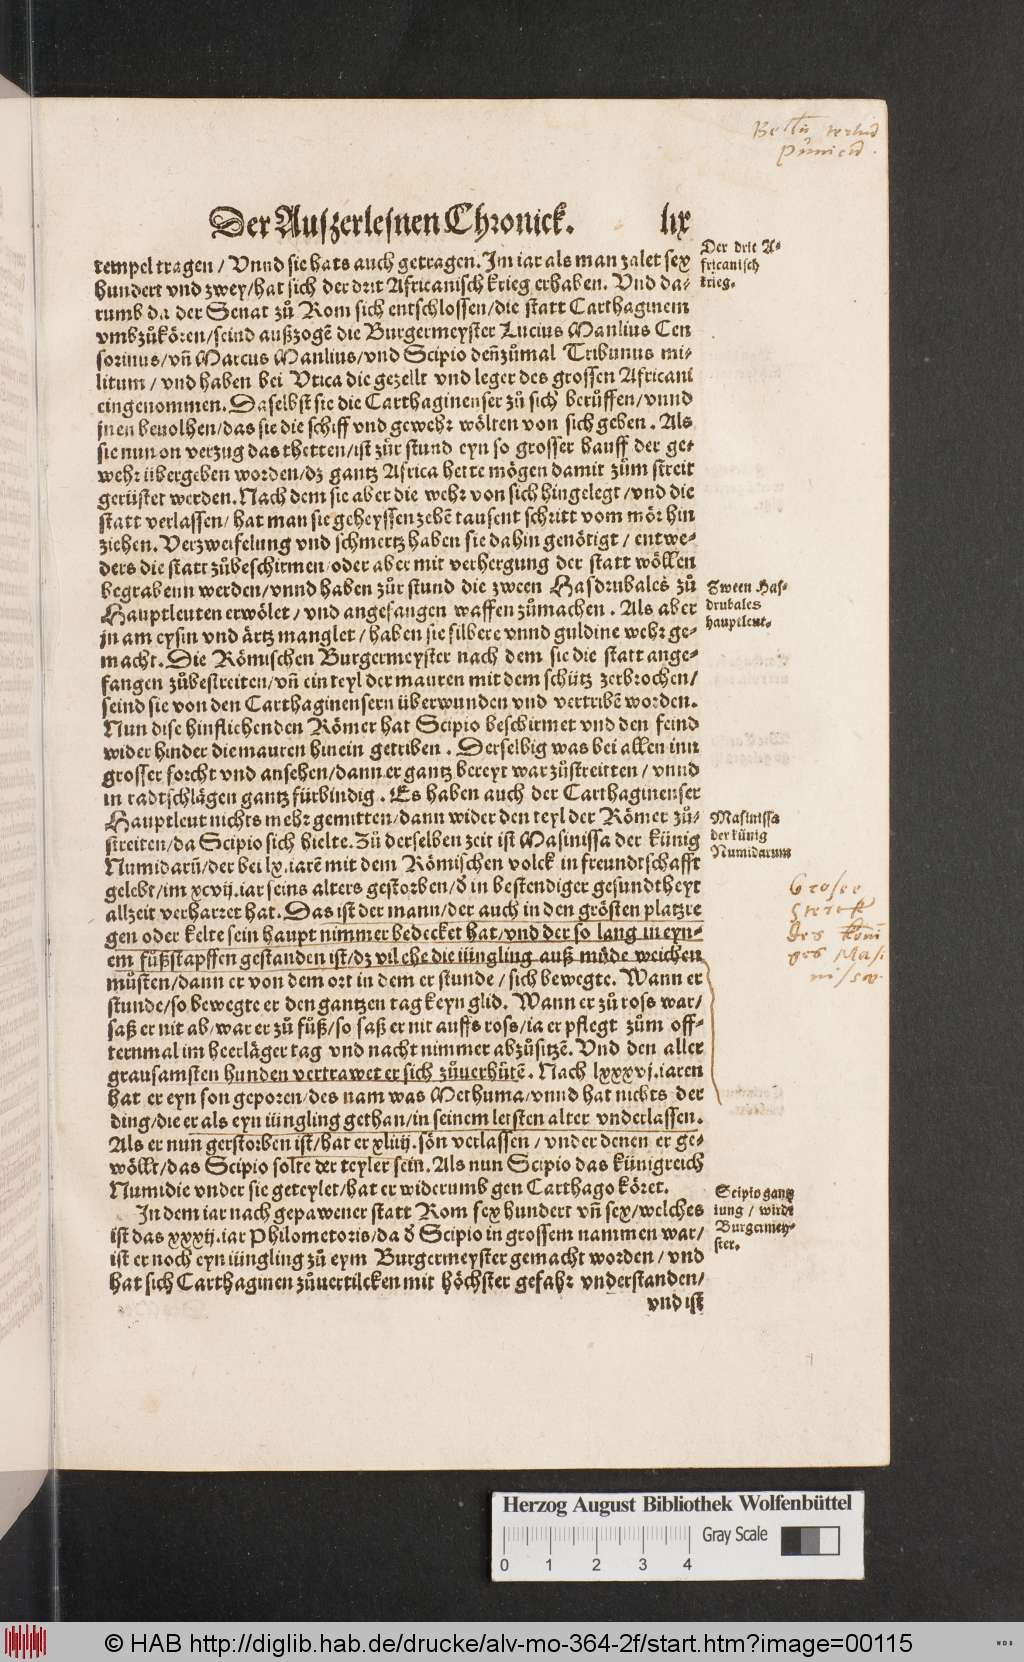 Bellū tertiū
Punicū.
Der Auszerlesnen Chronick. lix
tempel tragen / Vnnd sie hats auch getragen. Im iar als man zalet sex
hundert vnd zwey / hat sich der drit Africanisch krieg erhaben. Vnd da-
rumb da der Senat zů Rom sich entschlossen / die statt Carthaginem
vmbzůkören / seind außzogē die Burgermeyster Lucius Manlius Cen
sorinus / vñ Marcus Manlius / vnd Scipio deñzůmal Tribunus mi-
litum / vnd haben bei Vtica die gezellt vnd leger des grossen Africani
eingenommen. Daselbst sie die Carthaginenser zů sich berüffen / vnnd
jnen beuolhen / das sie die schiff vnd gewehr wölten von sich geben. Als
sie nun on verzug das thetten / ist zůr stund eyn so grosser hauff der ge-
wehr übergeben worden / dz gantz Africa hette mögen damit zům streit
gerüstet werden. Nach dem sie aber die wehr von sich hingelegt / vnd die
statt verlassen / hat man sie geheyssen zehē tausent schritt vom mör hin
ziehen. Verzweifelung vnd schmertz haben sie dahin genötigt / entwe-
ders die statt zůbeschirmen / oder aber mit verhergung der statt wöllen
begrabenn werden / vnnd haben zůr stund die zween Hasdrubales zů
Hauptleuten erwölet / vnd angefangen waffen zůmachen. Als aber
jn am eysin vnd ärtz manglet / haben sie silbere vnnd guldine wehr ge-
macht. Die Römischen Burgermeyster nach dem sie die statt ange-
fangen zůbestreiten / vñ ein teyl der mauren mit dem schütz zerbrochen /
seind sie von den Carthaginensern überwunden vnd vertribē worden.
Nun dise hinfliehenden Römer hat Scipio beschirmet vnd den feind
wider hinder die mauren hinein getriben. Derselbig was bei allen inn
grosser forcht vnd ansehen / dann er gantz bereyt war zůstreitten / vnnd
in radtschlägen gantz fürbindig. Es haben auch der Carthaginenser
Hauptleut nichts mehr gemitten / dann wider den teyl der Römer zů-
streiten / da Scipio sich hielte. Zů derselben zeit ist Masinissa der künig
Numidarū / der bei lx. iarē mit dem Römischen volck in freundtschafft
gelebt / im xcvij. iar seins alters gestorben / ď in bestendiger gesundtheyt
allzeit verharret hat. Das ist der mann / der auch in den grösten platzre
gen oder kelte sein haupt nimmer bedecket hat / vnd der so lang in eyn-
em fůßstapffen gestanden ist / dz vil ehe die iüngling auß möde weichen
můsten / dann er von dem ort in dem er stunde / sich bewegte. Wann er
stunde / so bewegte er den gantzen tag keyn glid. Wann er zů ross war /
saß er nit ab / war er zů fůß / so saß er nit auffs ross / ia er pflegt zům off-
ternmal im heerläger tag vnd nacht nimmer abzůsitzē. Vnd den aller
grausamsten hunden vertrawet er sich zůuerhütē. Nach lxxxvj. iaren
hat er eyn son geporen / des nam was Methuma / vnnd hat nichts der
ding / die er als eyn iüngling gethan / in seinem letsten alter vnderlassen.
Als er nun gerstorben ist / hat er xliiij. sön verlassen / vnder denen er ge-
wöllt / das Scipio solte der teyler sein. Als nun Scipio das künigreich
Numidie vnder sie geteylet / hat er widerumb gen Carthago köret.
In dem iar nach gepawener statt Rom sex hundert vñ sex / welches
ist das xxxij. iar Philometoris / da ď Scipio in grossem nammen war /
ist er noch eyn iüngling zů eym Burgermeyster gemacht worden / vnd
hat sich Carthaginen zůuertilcken mit höchster gefahr vnderstanden /
vnd ist
Der drit A-
fricanisch
krieg.
Zween Has-
drubales
hauptleut.
Masinissa
der künig
Numidarum
Grosee
sterck
des köni
ges Mas-
nissæ.
Scipio gantz
iung / wirdt
Burgermey-
ster.
Herzog August Bibliothek Wolfenbüttel
0 1 2 3 4 Gray Scale
© HAB http://diglib.hab.de/drucke/alv-mo-364-2f/start.htm?image=00115